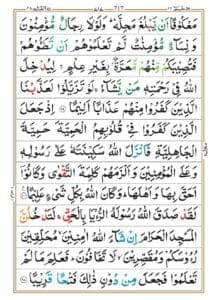 مَعْكُوْفًا اَنْ يَّبْلُغَ مَحِلَّهٗ ؕ وَلَوْلَا رِجَالٌ مُّؤْمِنُوْنَ
وَنِسَآءٌ مُّؤْمِنٰتٌ لَّمْ تَعْلَمُوْهُمْ اَنْ تَطَـُٔوْهُمْ
فَتُصِيْبَكُمْ مِّنْهُمْ مَّعَرَّةٌۢ بِغَيْرِ عِلْمٍ ۚ لِيُدْخِلَ
اللّٰهُ فِيْ رَحْمَتِهٖ مَنْ يَّشَآءُ ۚ لَوْ تَزَيَّلُوْا لَعَذَّبْنَا
الَّذِيْنَ كَفَرُوْا مِنْهُمْ عَذَابًا اَلِيْمًا ۝ اِذْ جَعَلَ
الَّذِيْنَ كَفَرُوْا فِيْ قُلُوْبِهِمُ الْحَمِيَّةَ حَمِيَّةَ
الْجَاهِلِيَّةِ فَاَنْزَلَ اللّٰهُ سَكِيْنَتَهٗ عَلٰى رَسُوْلِهٖ
وَعَلَى الْمُؤْمِنِيْنَ وَاَلْزَمَهُمْ كَلِمَةَ التَّقْوٰى وَكَانُوْۤا
اَحَقَّ بِهَا وَاَهْلَهَا ؕ وَكَانَ اللّٰهُ بِكُلِّ شَيْءٍ عَلِيْمًا ۝
لَقَدْ صَدَقَ اللّٰهُ رَسُوْلَهُ الرُّءْيَا بِالْحَقِّ ۚ لَتَدْخُلُنَّ
الْمَسْجِدَ الْحَرَامَ اِنْ شَآءَ اللّٰهُ اٰمِنِيْنَ ۙ مُحَلِّقِيْنَ
رُءُوْسَكُمْ وَمُقَصِّرِيْنَ ۙ لَا تَخَافُوْنَ ؕ فَعَلِمَ مَا لَمْ
تَعْلَمُوْا فَجَعَلَ مِنْ دُوْنِ ذٰلِكَ فَتْحًا قَرِيْبًا ۝